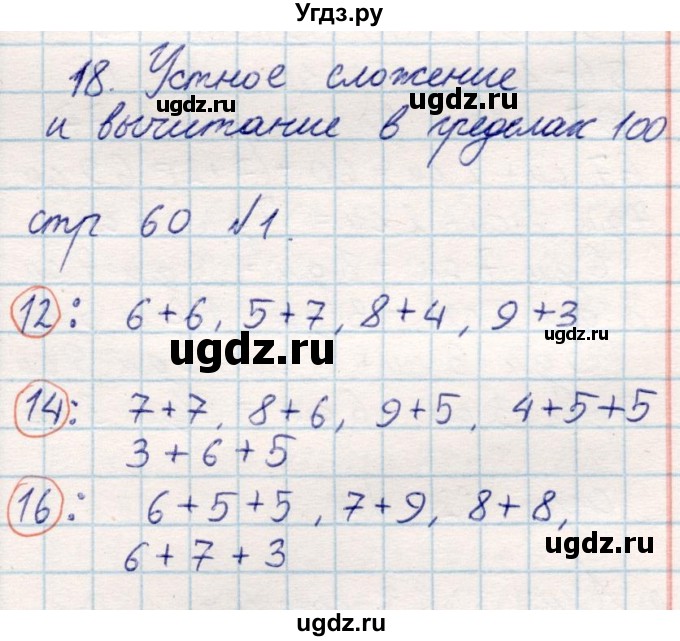 Угдз.ру
18. Устное сложение
ugdz.ru ugdz.ru
и вычитание в пределах 100
стр 60 №1.
ugdz.ru
12: 6+6, 5+7, 8+4, 9+3
ugdz.ru ugdz.ru
14: 7+7, 8+6, 9+5, 4+5+5
3+6+5
ugdz.ru
16: 6+5+5, 7+9, 8+8,
ugdz.ru
6+7+3
ugdz.ru
ugdz.ru